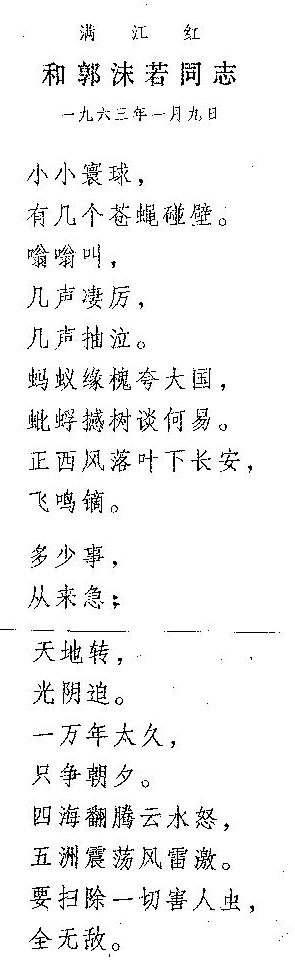 满江红
和郭沫若同志
一九六三年一月九日
小小寰球，
有几个苍蝇碰壁。
嗡嗡叫，
几声凄厉，
几声抽泣。
蚂蚁缘槐夸大国，
蚍蜉撼树谈何易。
正西风落叶下长安，
飞鸣镝。
多少事，
从来急；
天地转，
光阴迫。
一万年太久，
只争朝夕。
四海翻腾云水怒，
五洲震荡风雷激。
要扫除一切害人虫，
全无敌。